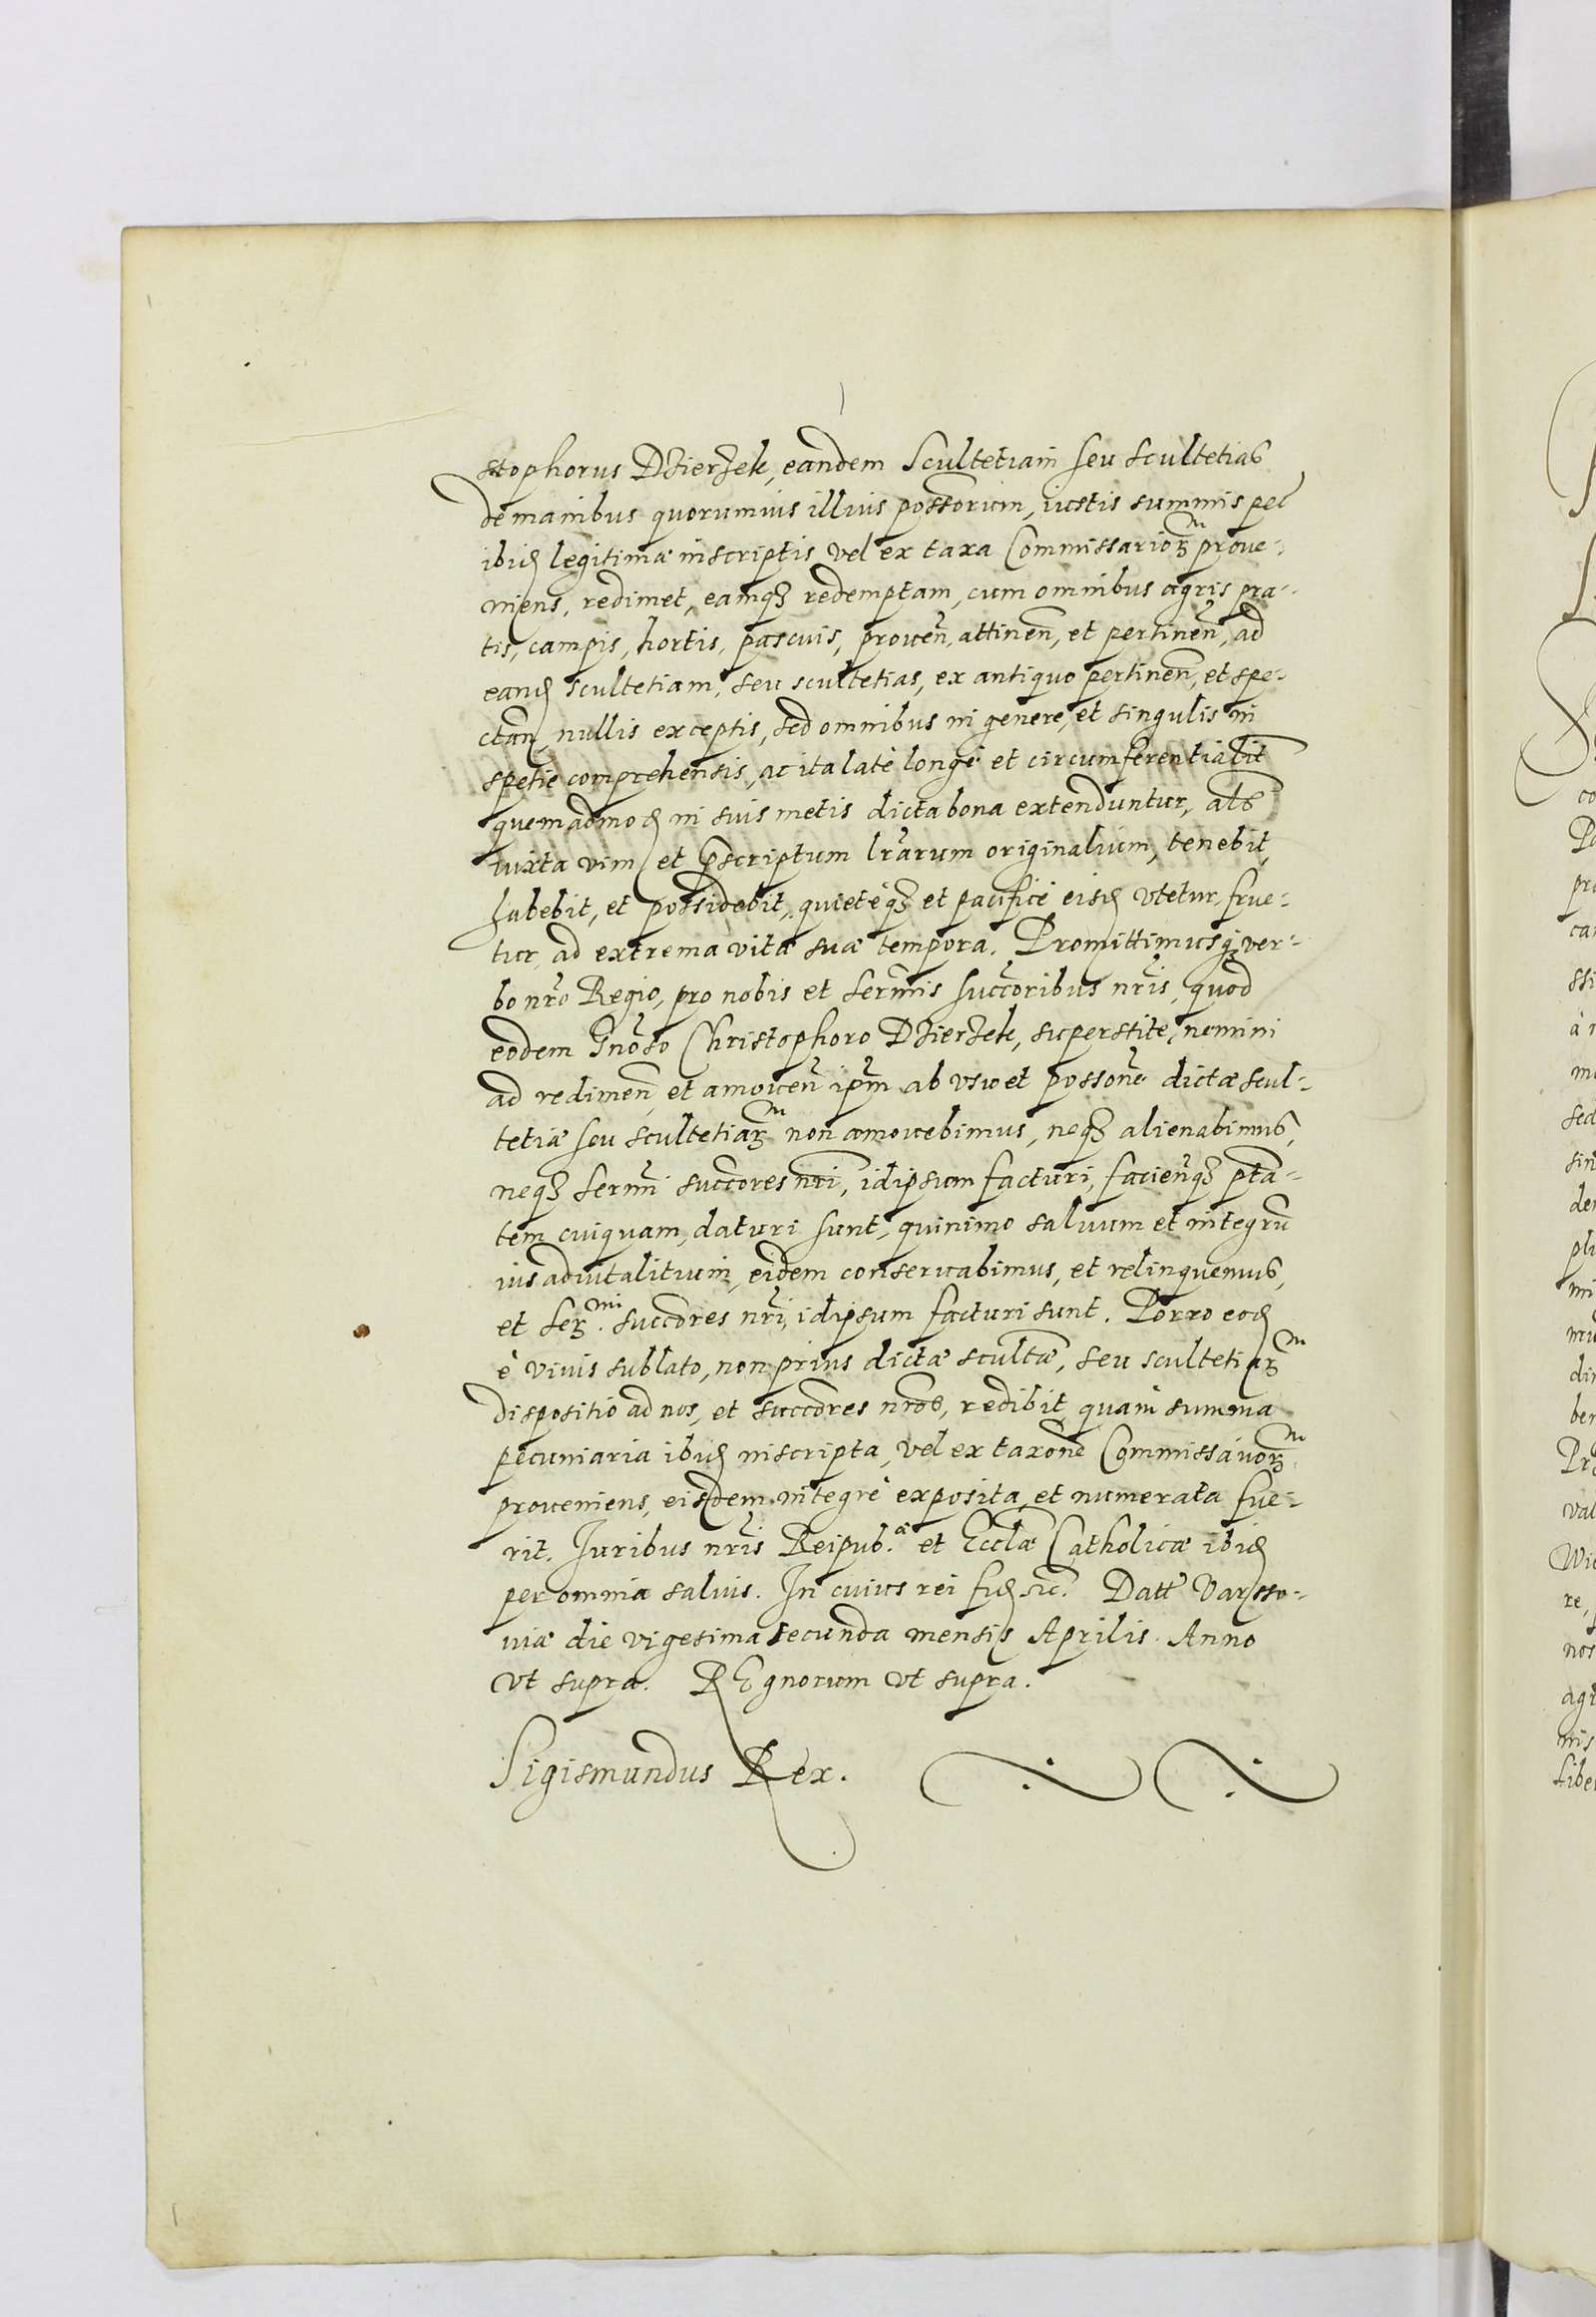 stophorus Dzierzek, eandem Scultetiam seu scultetias
de manibus quorumuis illius possorum, iustis summis pec̃
ibid legitimæ inscriptis vel ex taxa Commissarior̃m proue-
niens, redimet, eamq3 redemptam, cum omnibus agris pra-
tis, campis, hortis, pascuis, prouen̄, attinen̄, et pertinen̄, ad
eand scultetiam, seu scultetias, ex antiquo pertinen̄, et spe-
ctan̄, nullis exceptis, sed omnibus in genere, et singulis in
spetie comprehensis, ac ita latè longè et circumferentialit̃
quemadmod in suis metis dicta bona extenduntur, als̃
iuxta vim et p̄scriptum lr̃arum originalium, tenebit,
habebit, et possidebit, quietèq3 et pacificè eisd vtetur frue-
tur, ad extrema vitæ suæ tempora. Promittimusq3 ver-
bo nr̃o Regio, pro nobis et Serm̃is succ̃oribus nr̃is, quod
eodem Gnõso Christophoro Dzierzek, superstite, nemini
ad redimen̄, et amouen̄ ip̃m ab vsu et possõne dictæ scul-
tetiæ seu scultetiar̃m non amouebimus, neq3 alienabimus,
neq3 Serm̃i succ̃ores nr̃i, idipsum facturi, facien̄q3 ptã-
tem cuiquam, daturi sunt, quinimo saluum et integrũ
ius aduitalitium, eidem conseruabimus, et relinquemus,
et Ser.mi succ̃ores nr̃i, idipsum facturi sunt. Porro eod
è viuis sublato, non prius dictæ scultæ̃, seu scultetiar̃m
dispositio ad nos, et succ̃ores nr̃os, redibit, quam summa
pecuniaria ibid inscripta, vel ex taxõne Commissarior̃m
proueniens, eisdem integrè exposita et numerata fue-
rit. Iuribus nr̃is Reipub.æ et Ecclæ̃ Catholicæ ibid
per omnia saluis. In cuius rei fid etc̃. Datt̃ Varsso-
uiæ die vigesima secunda mensis Aprilis. Anno
vt supra. REgnorum vt supra.
Sigismundus Rex.